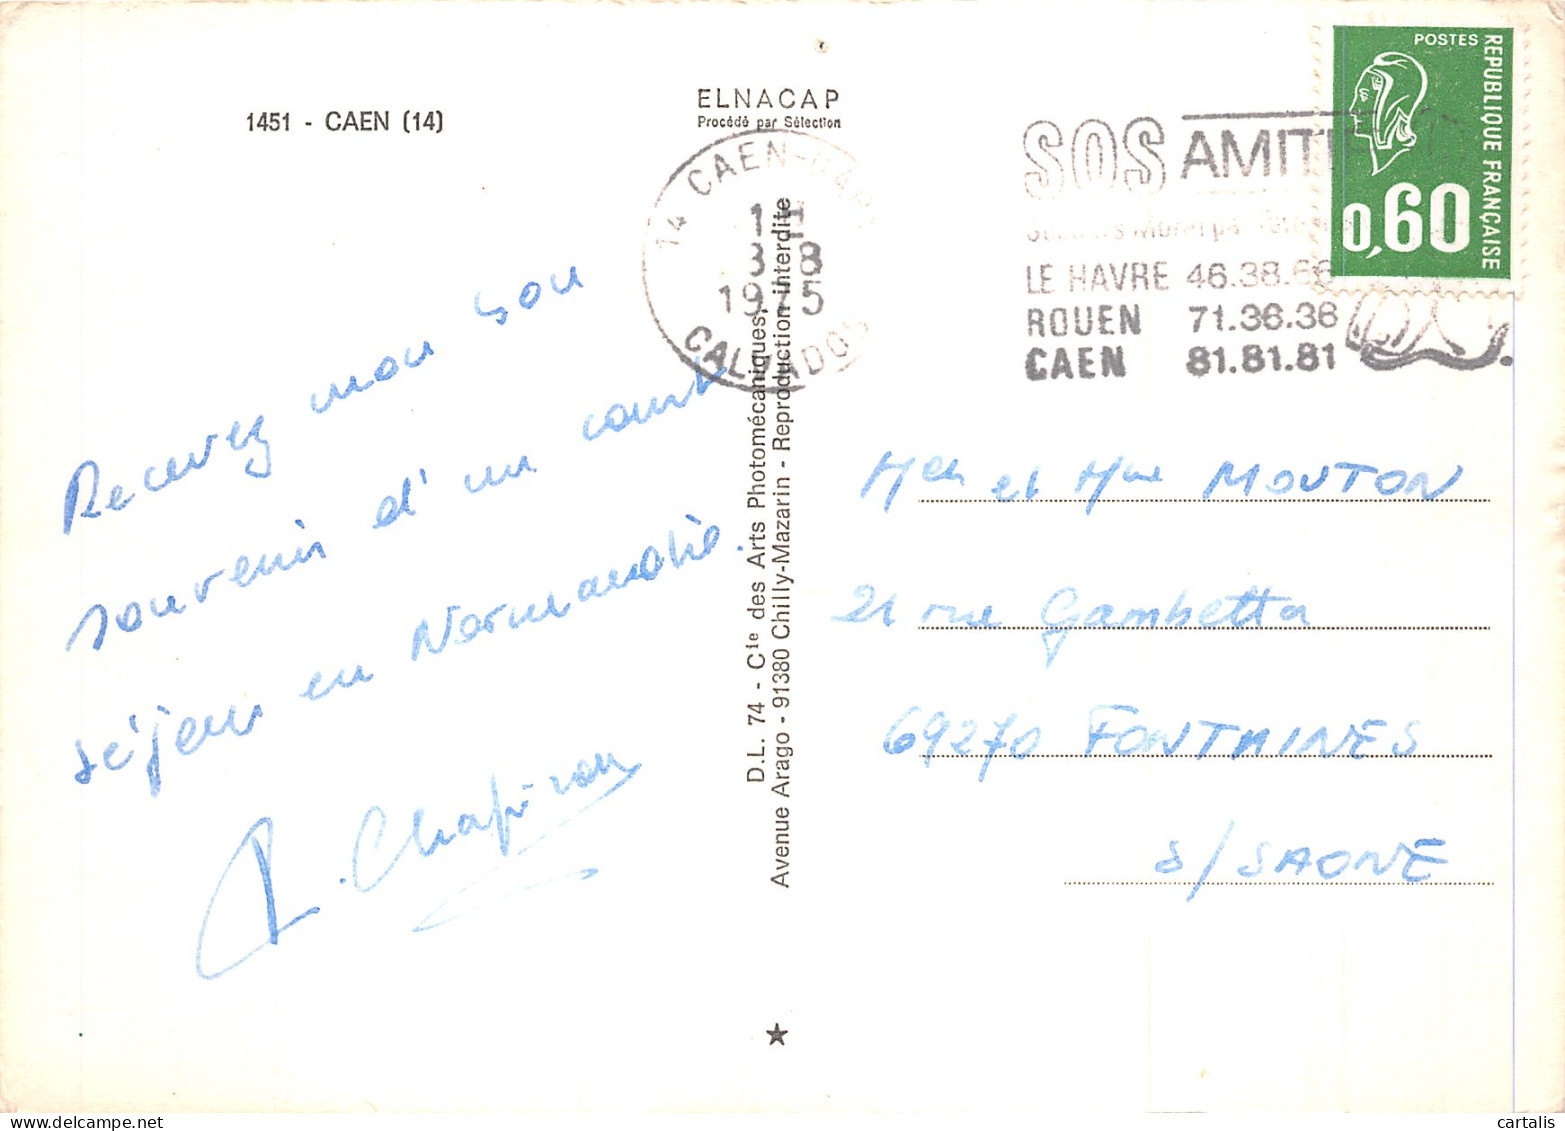 1451 - CAEN (14)
ELNACAP
Procédé par Sélection
14 CAEN-GARE
1H
8-8
1975
CALVADOS
SOS AMITIE
LE HAVRE 46.38.66
ROUEN 71.36.36
CAEN 81.81.81
POSTES
REPUBLIQUE FRANÇAISE
0,60
Recevez mon bon
souvenir d'un court
séjour en Normandie.
Chapiron
D.L. 74 - Cie des Arts Photomécaniques,
Avenue Arago - 91380 Chilly-Mazarin - Reproduction interdite
Mer et Mme MOUTON
21 rue Gambetta
69270 FONTAINES
S/SAONE
cartalis